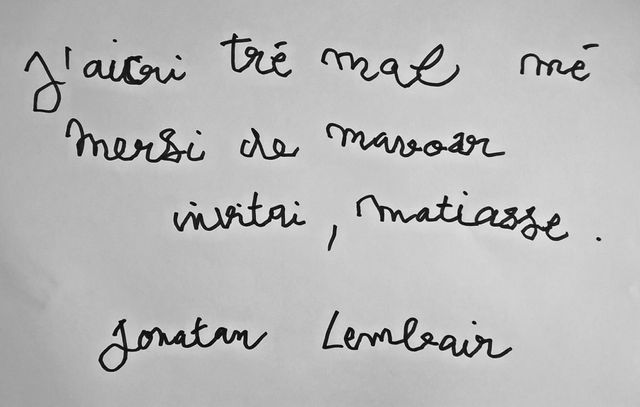 J'aicri tré mal mé
mersi de mavoar
invitai, Matiasse.
Jonatan Lembair